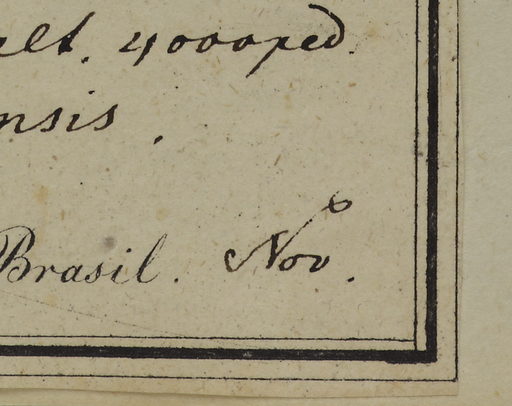 alt. 4000ped.
nsis.
Brasil. Nov.